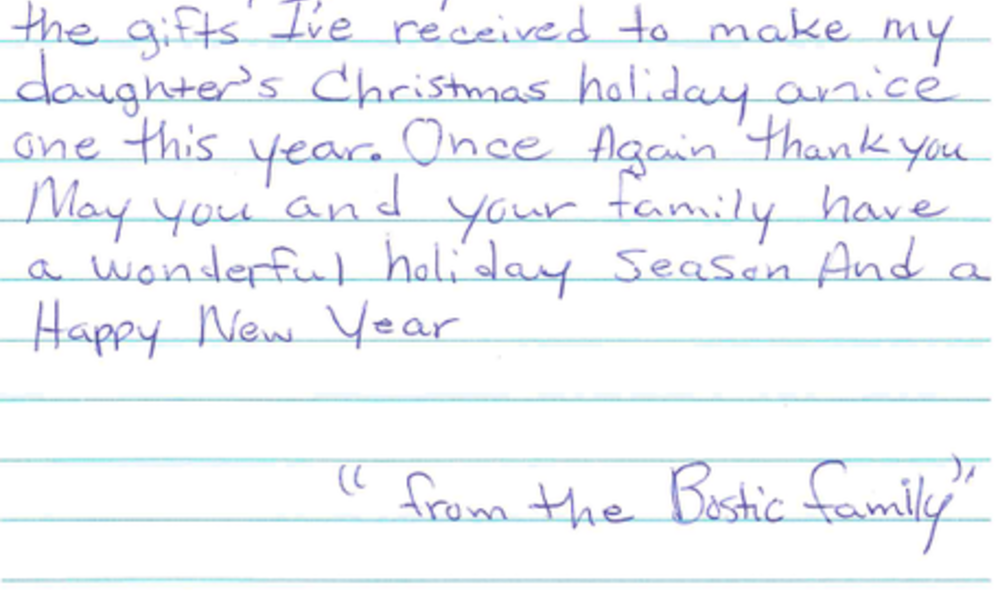 the gifts I've received to make my
daughter's Christmas holiday a nice
one this year. Once Again thank you
May you and your family have
a wonderful holiday season And a
Happy New Year
"from the Bostic family"